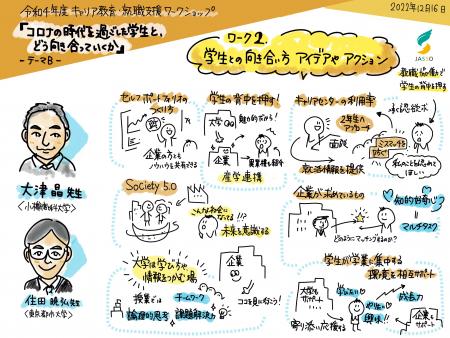 令和4年度 キャリア教育・就職支援ワークショップ
2022年12月16日
「コロナの時代を過ごした学生と、
どう向き合っていくか」
-テーマB-
ワーク2.
学生との向き合い方 アイデアや アクション
JASSO
教職協働で
学生の背中を押す
セルフポートフォリオの
つくり方
企業の方とも
ノウハウを共有できる
学生の背中を押す!
大学
魅力的だから!
企業
産学連携
キャリアセンターの利用率
2年生から
アプローチ
面談
就活情報を提供
承認欲求
ミスマッチを
防ぐ
私のことも認めて
ほしい
大津 晶 先生
<小樽商科大学>
Society 5.0
こんな社会に
なってる!!
未来を意識する
企業が求めているもの
知的好奇心
マルチタスク
どのようにマッチングするのか?
大学は学び方や
情報をつかむ場
授業では
論理的思考
チームワーク
課題解決力
企業
ココを見に行こう!
学生が学業に集中する
環境と相互サポート
大学も
サポート
寄り添い応援する
学びたい
やりたい
興味!!
成長力
企業も
サポート
住田 曉弘 先生
<東京都市大学>